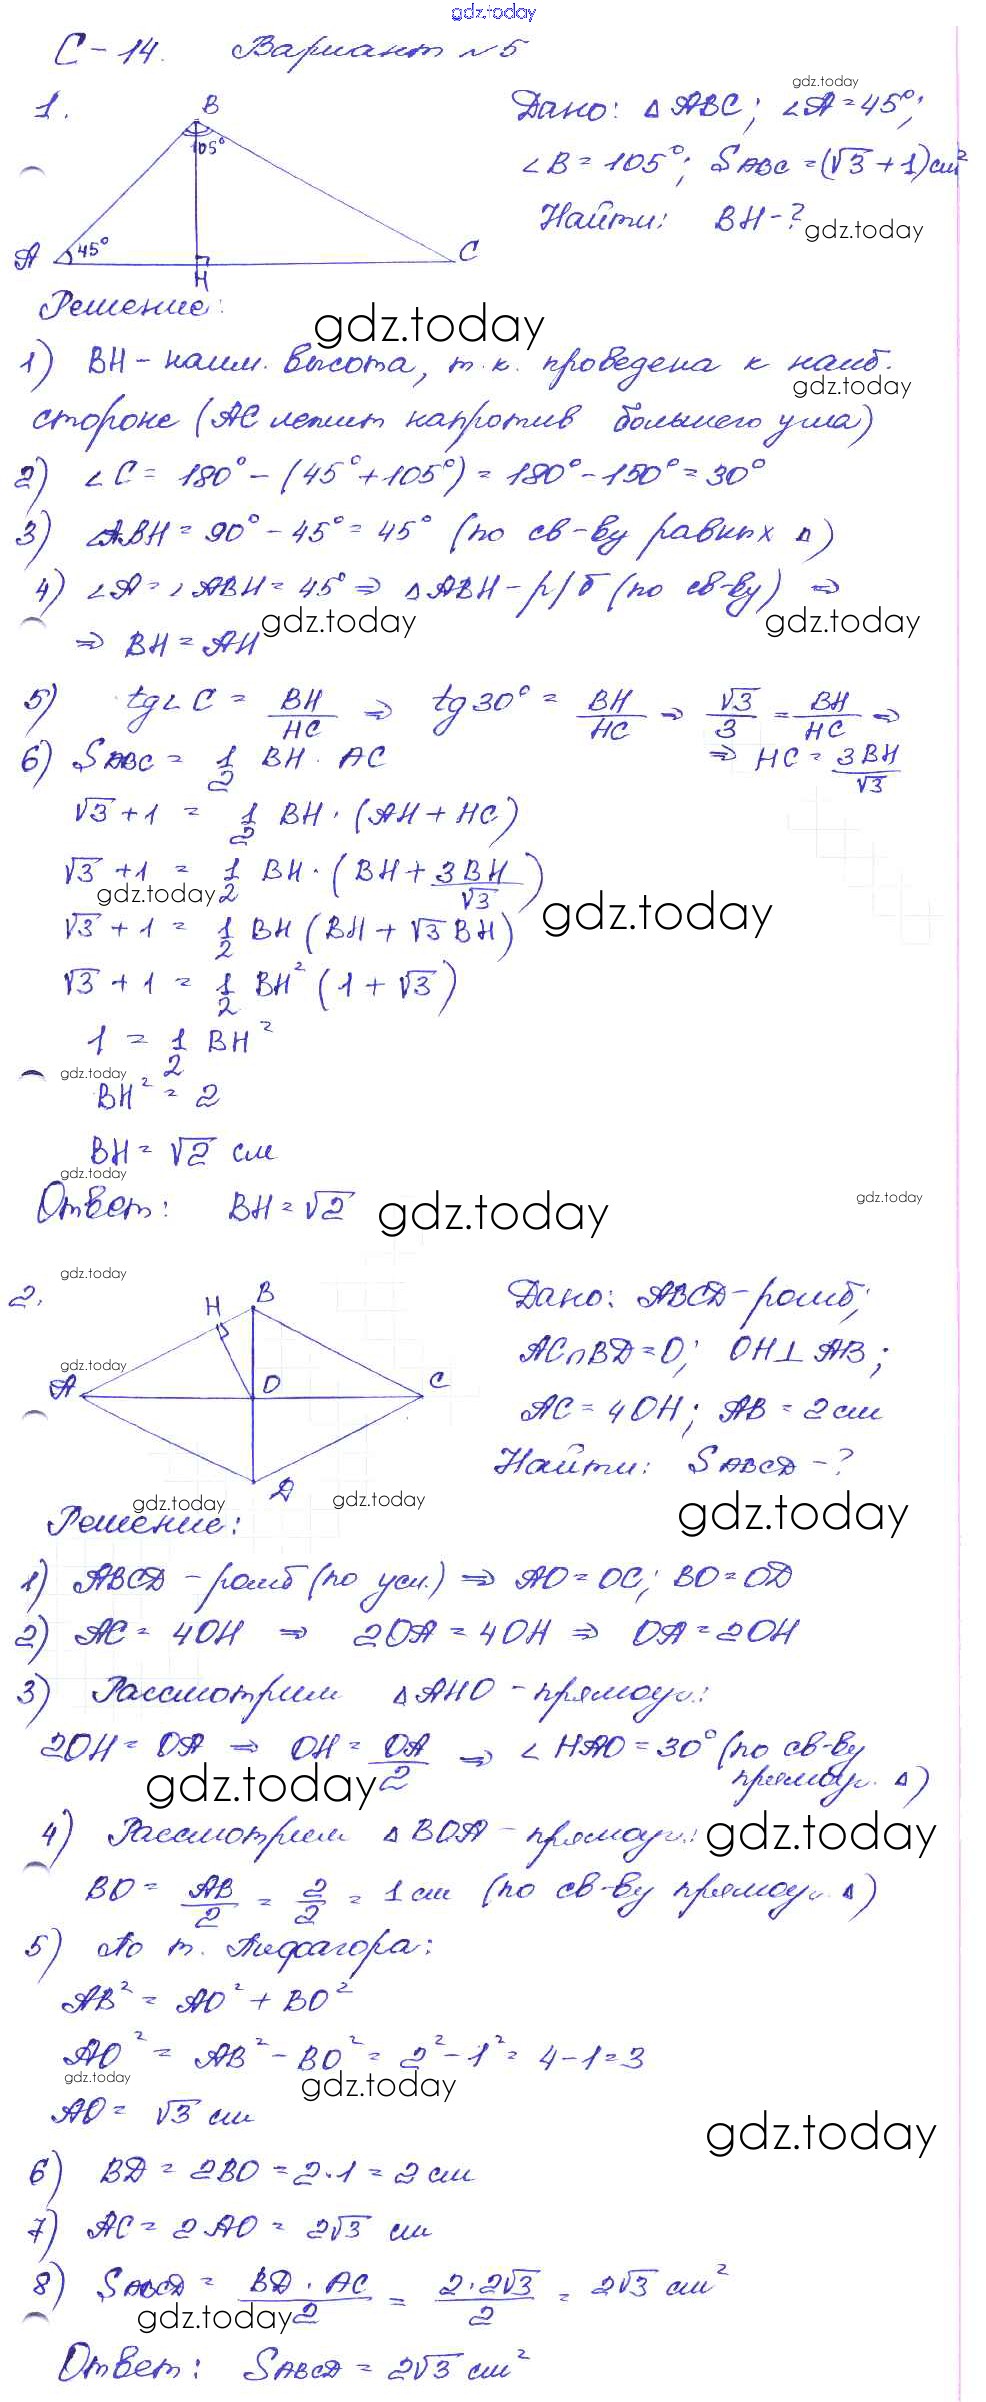 gdz.today
С-14. Вариант №5
gdz.today
1.
B
105°
A
45°
H
C
Дано: △ABC; ∠A=45°;
∠B=105°; S ABC = (√3+1) см²
Найти: BH-?
gdz.today
Решение:
gdz.today
1) BH - наим. высота, т.к. проведена к наиб.
gdz.today
стороне (AC лежит напротив большего угла)
2) ∠C = 180° - (45°+105°) = 180° - 150° = 30°
3) ∠ABH = 90° - 45° = 45° (по св-ву равных △)
4) ∠A = ∠ABH = 45° ⇒ △ABH - р/б (по св-ву) ⇒
gdz.today gdz.today
⇒ BH = AH
5) tg∠C = BH/HC ⇒ tg30° = BH/HC ⇒ √3/3 = BH/HC ⇒
⇒ HC = 3BH/√3
6) S ABC = 1/2 BH · AC
√3+1 = 1/2 BH · (AH+HC)
√3+1 = 1/2 BH · (BH + 3BH/√3)
gdz.today
gdz.today
√3+1 = 1/2 BH (BH + √3 BH)
√3+1 = 1/2 BH² (1+√3)
1 = 1/2 BH²
gdz.today
BH² = 2
BH = √2 см
gdz.today
Ответ: BH = √2
gdz.today
gdz.today
gdz.today
2.
H
B
gdz.today
A
O
C
D
Дано: ABCD - ромб;
AC∩BD=O; OH⊥AB;
AC=4OH; AB=2см
Найти: S ABCD -?
gdz.today
gdz.today
gdz.today
Решение:
1) ABCD - ромб (по усл.) ⇒ AO=OC; BO=OD
2) AC=4OH ⇒ 2OA=4OH ⇒ OA=2OH
3) Рассмотрим △AHO - прямоуг.:
2OH=OA ⇒ OH = OA/2 ⇒ ∠HAO=30° (по св-ву
прямоуг. △)
gdz.today
4) Рассмотрим △BOA - прямоуг.:
gdz.today
BO = AB/2 = 2/2 = 1 см (по св-ву прямоуг. △)
5) По т. Пифагора:
AB² = AO² + BO²
AO² = AB² - BO² = 2² - 1² = 4-1=3
gdz.today
gdz.today
AO = √3 см
gdz.today
6) BD = 2BO = 2·1 = 2 см
7) AC = 2AO = 2√3 см
8) S ABCD = BD · AC/2 = 2·2√3/2 = 2√3 см²
gdz.today
Ответ: S ABCD = 2√3 см²